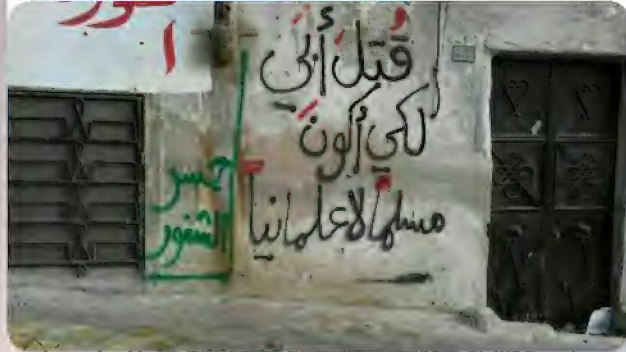 قُتِلَ أبي
لكي أكونَ
مسلماً لا علمانياً
جسر
الشغور